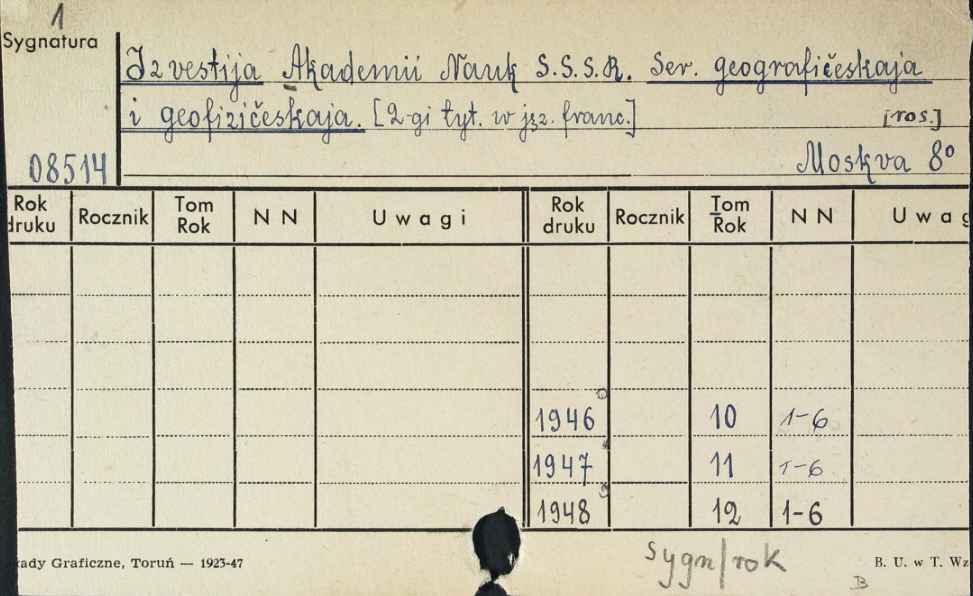 1
Sygnatura
Izvestija Akademii Nauk S.S.S.R. Ser. geografičeskaja
i geofizičeskaja. [2-gi tyt. w jęz. franc.] [ros.]
08514 Moskva 8°
Rok druku Rocznik Tom Rok N N Uwagi Rok druku Rocznik Tom Rok N N Uwag
1946 10 1-6
1947 11 1-6
1948 12 1-6
Graficzne, Toruń — 1923-47
sygn/rok
B. U. w T. Wz
B